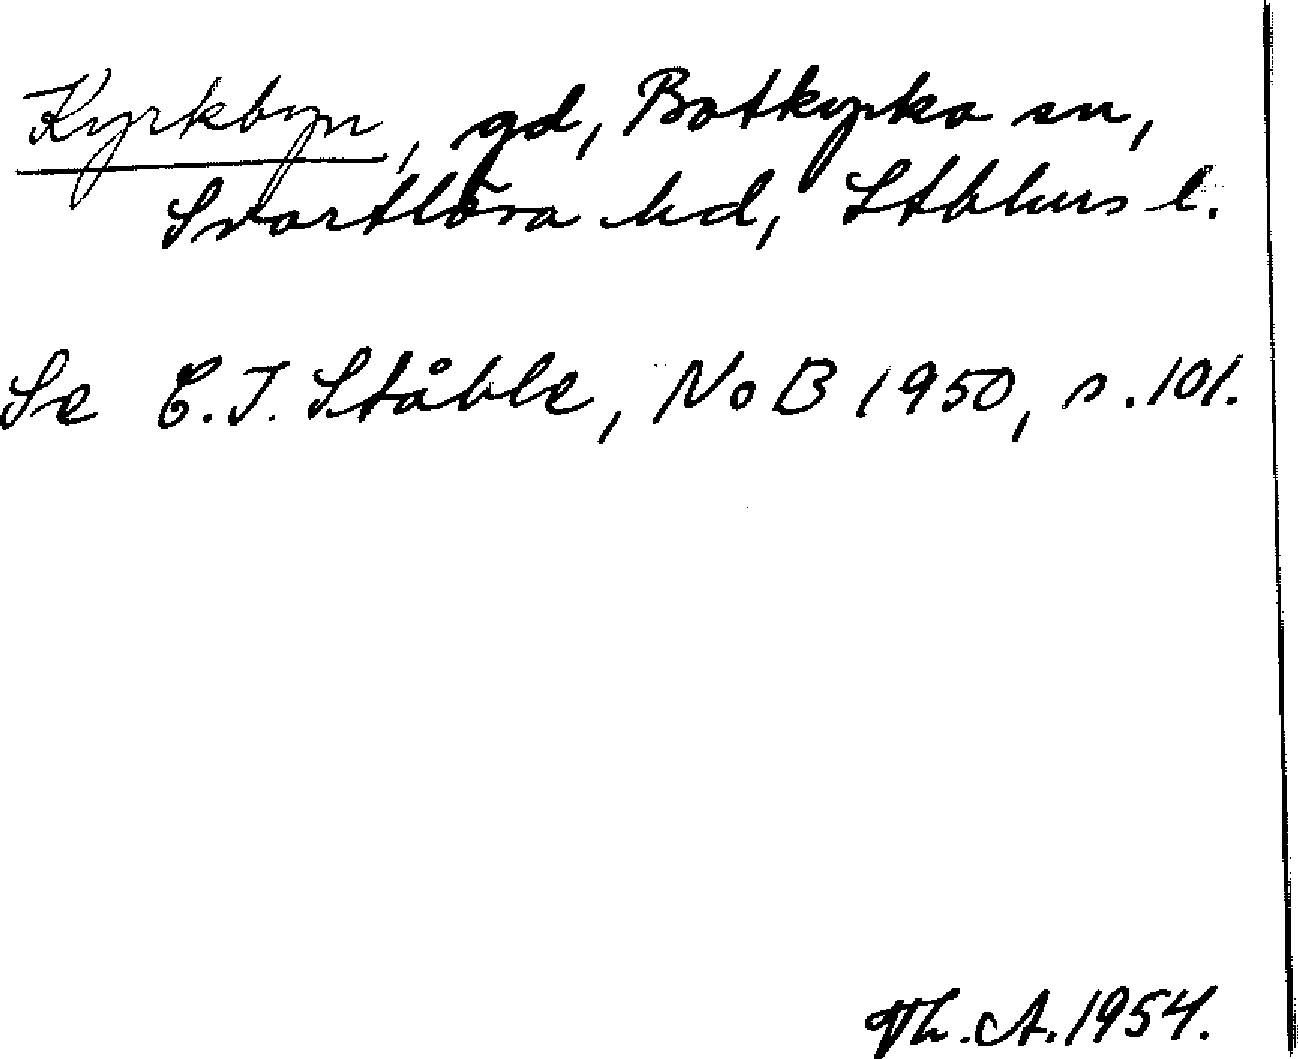 Kyrkbyn, gd, Botkyrka sn,
Svartlösa hd, Sthlms l.
Se C. I. Ståhle, NoB 1950, s. 101.
Th. A. 1954.